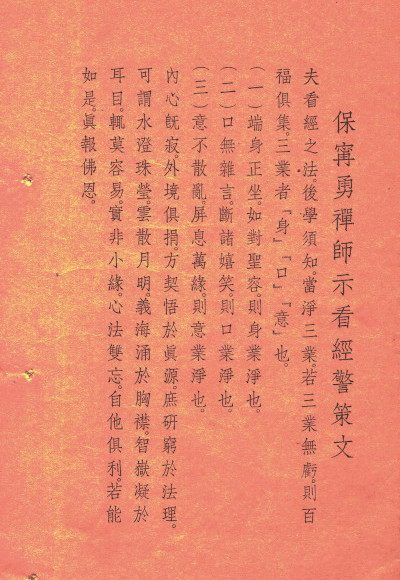 保甯勇禪師示看經警策文
夫看經之法。後學須知。當淨三業。若三業無虧。則百
福俱集。三業者『身』『口』『意』也。
(一)端身正坐。如對聖容。則身業淨也。
(二)口無雜言。斷諸嬉笑。則口業淨也。
(三)意不散亂。屏息萬緣。則意業淨也。
內心旣寂。外境俱捐。方契悟於眞源。庶研窮於法理。
可謂水澄珠瑩。雲散月明。義海涌於胸襟。智嶽凝於
耳目。輒莫容易。實非小緣。心法雙忘。自他俱利。若能
如是。眞報佛恩。